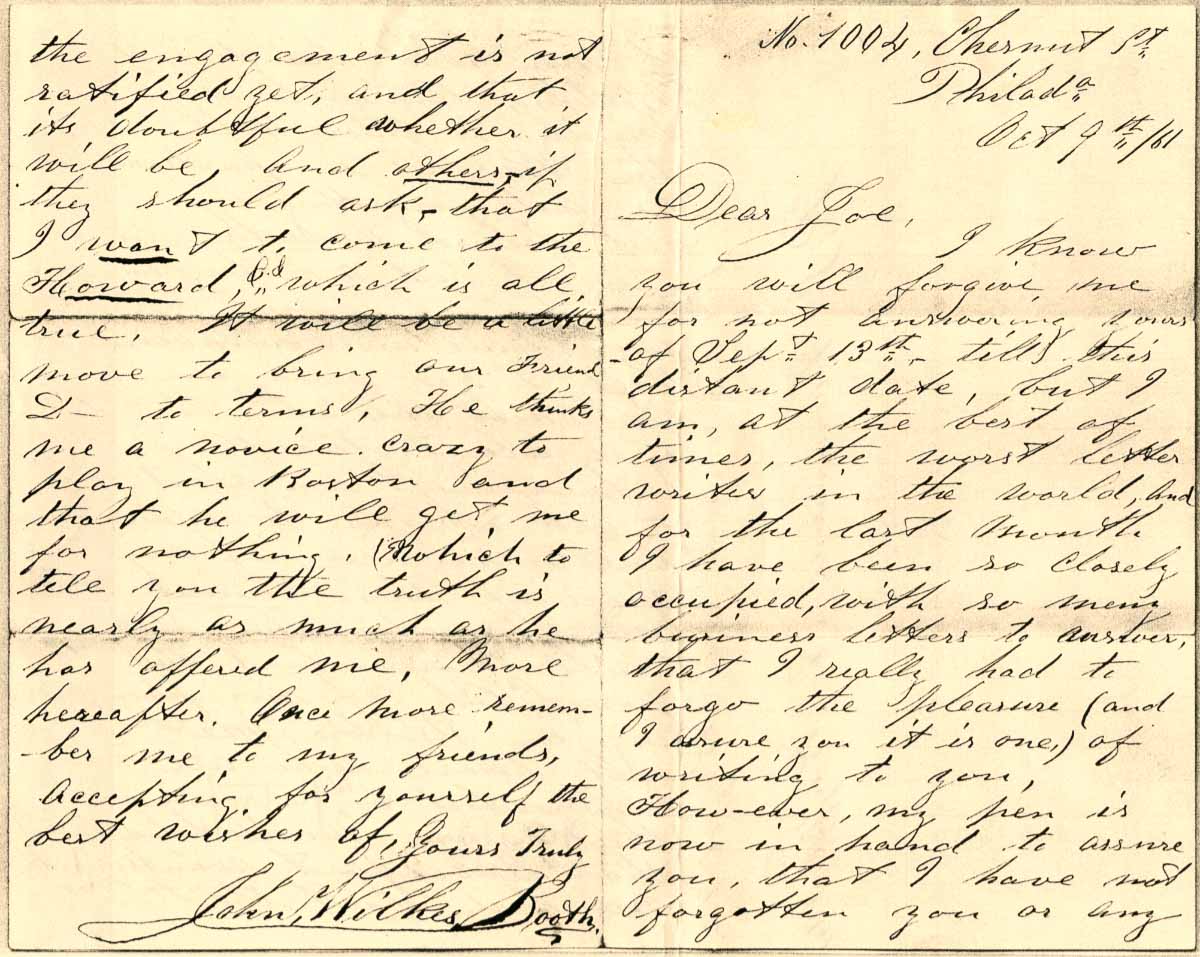 No. 1004, Chesnut St
Philada
Oct 9th/61
Dear Joe,
I know
you will forgive me
for not answering yours
-of Sept 13th- till this
distant date, but I
am, at the best of
times, the worst letter
writer in the world, and
for the last month
I have been so closely
occupied, with so many
business letters to answer,
that I really had to
forgo the pleasure (and
I asure you it is one,) of
writing to you,
How-ever, my pen is
now in hand to assure
you, that I have not
forgotten you or any
the engagement is not
ratified yet, and that
its doubtful whether it
will be and others, if
they should ask, that
I want to come to the
Howard, which is all
true. It will be a little
move to bring our Friend
D— to terms, He thinks
me a novice. crazy to
play in Boston and
that he will get me
for nothing. (Which to
tell you the truth is
nearly as much as he
has offered me, More
hereafter. Once more remem-
-ber me to my friends,
accepting for yourself the
best wishes of, Yours Truly
John Wilkes Booth.